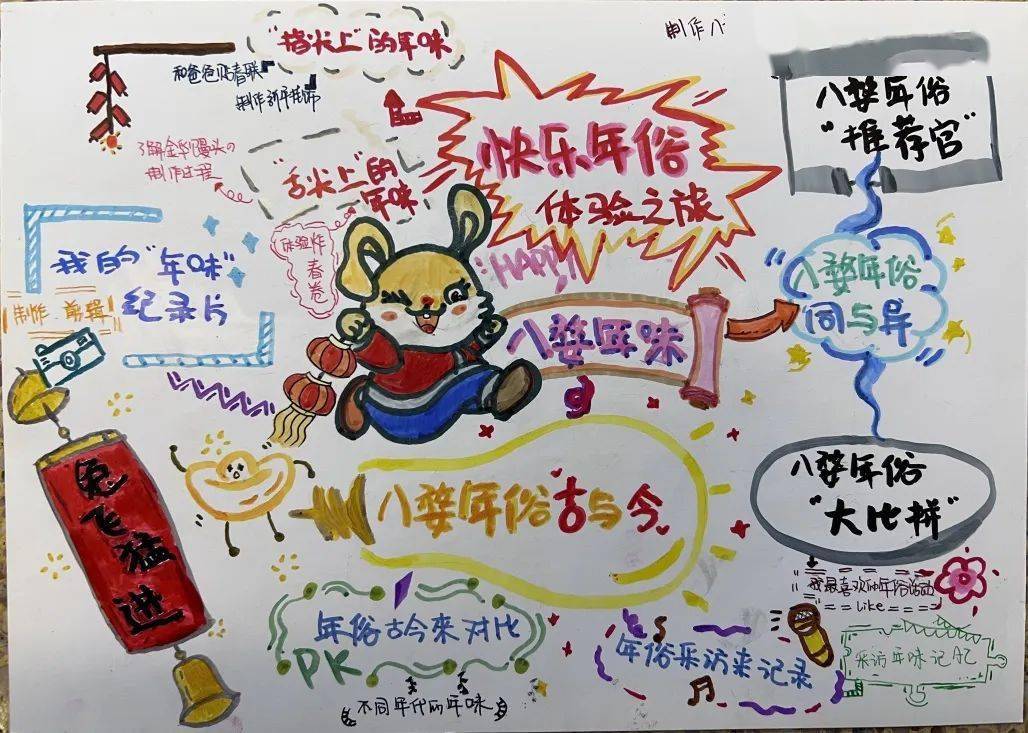 制作人
"指尖上"的年味
和爸爸贴春联
制作新年挂饰
了解金华馒头の
制作过程
"舌尖上"的
年味
体验炸
春卷
快乐年俗
体验之旅
HAPPY
八婺年俗
"推荐官"
我的"年味"
纪录片
制作 剪辑
八婺年味
八婺年俗
同与异
兔飞猛进
八婺年俗古与今
八婺年俗
"大比拼"
我最喜欢的年俗活动
like
年俗古今来对比
PK
不同年代的年味
年俗采访来记录
采访年味记忆